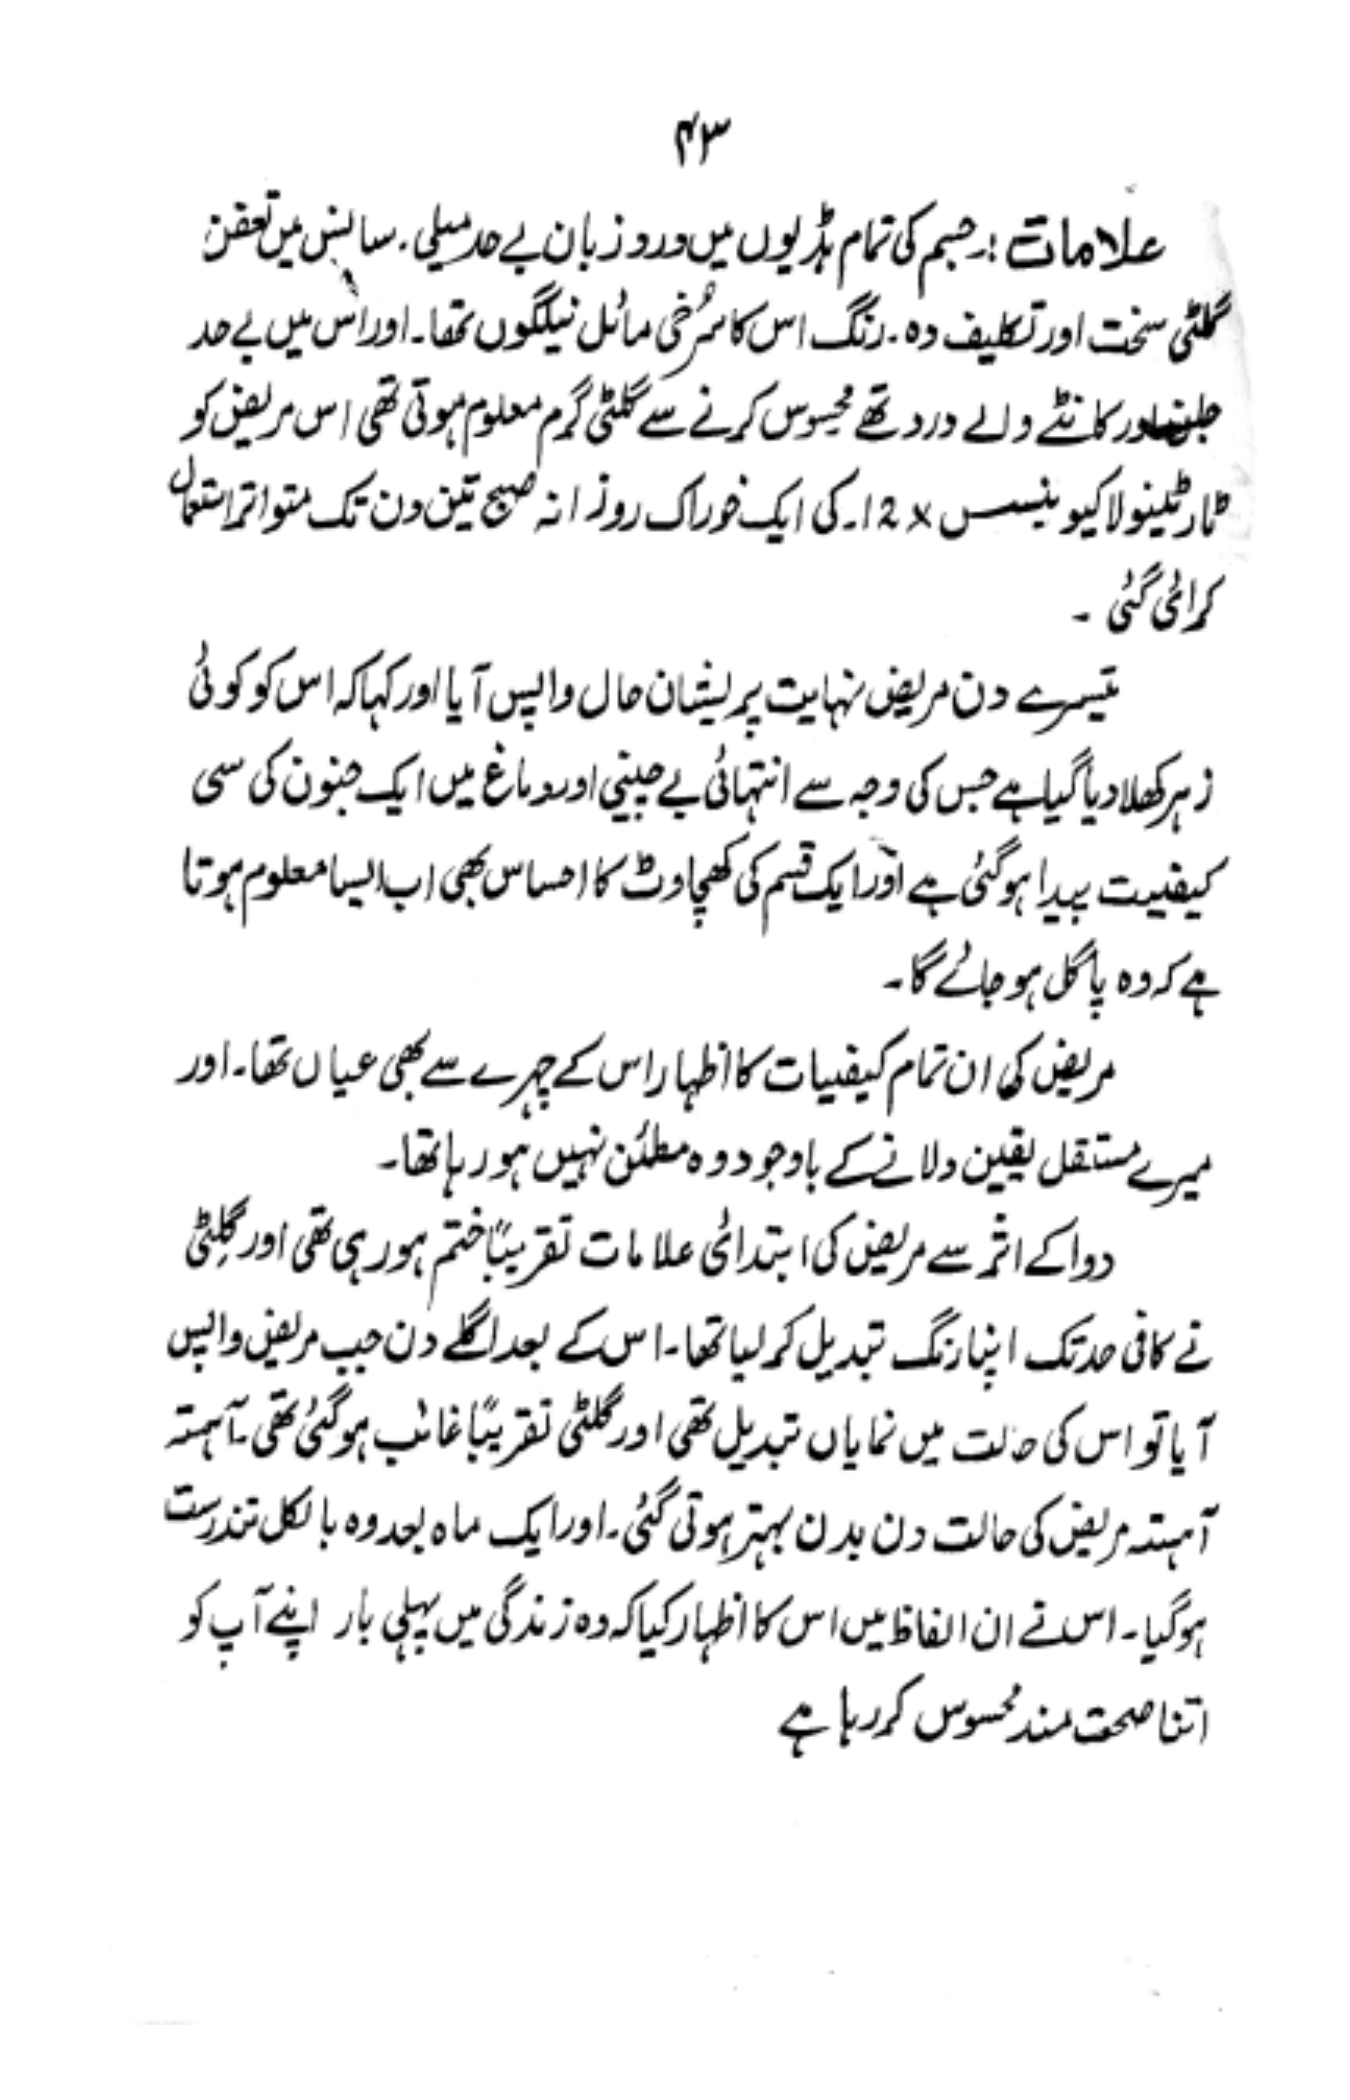 ۴۳
علامات :۔ جسم کی تمام ہڈیوں میں درد زبان بے حد میلی ۔ سانس میں تعفن
گلٹی سخت اور تکلیف دہ ۔ رنگ اس کا سُرخی مائل نیلگوں تھا ۔ اور اس میں بے حد
جلن اور کانٹے والے درد تھے محسوس کرنے سے گلٹی گرم معلوم ہوتی تھی اس مریض کو
ٹارٹینولا کیوبنسس 12x۔ کی ایک خوراک روزانہ صبح تین دن تک متواتر استعمال
کرائی گئی ۔
تیسرے دن مریض نہایت پریشان حال واپس آیا اور کہا کہ اس کو کوئی
زہر کھلا دیا گیا ہے جس کی وجہ سے انتہائی بے چینی اور دماغ میں ایک جنون کی سی
کیفیت پیدا ہوگئی ہے اور ایک قسم کی کھچاوٹ کا احساس بھی اب ایسا معلوم ہوتا
ہے کہ وہ پاگل ہو جائے گا ۔
مریض کی ان تمام کیفیات کا اظہار اس کے چہرے سے بھی عیاں تھا ۔ اور
میرے مستقل یقین دلانے کے باوجود وہ مطئن نہیں ہو رہا تھا ۔
دوا کے اثر سے مریض کی ابتدائی علامات تقریباً ختم ہو رہی تھی اور گلٹی
نے کافی حد تک اپنا رنگ تبدیل کر لیا تھا ۔ اس کے بعد اگلے دن جب مریض واپس
آیا تو اس کی حالت میں نمایاں تبدیل تھی اور گلٹی تقریباً غائب ہوگئی تھی ۔ آہستہ
آہستہ مریض کی حالت دن بدن بہتر ہوتی گئی ۔ اور ایک ماہ بعد وہ بالکل تندرست
ہوگیا ۔ اس نے ان الفاظ میں اس کا اظہار کیا کہ وہ زندگی میں پہلی بار اپنے آپ کو
اتنا صحت مند محسوس کر رہا ہے